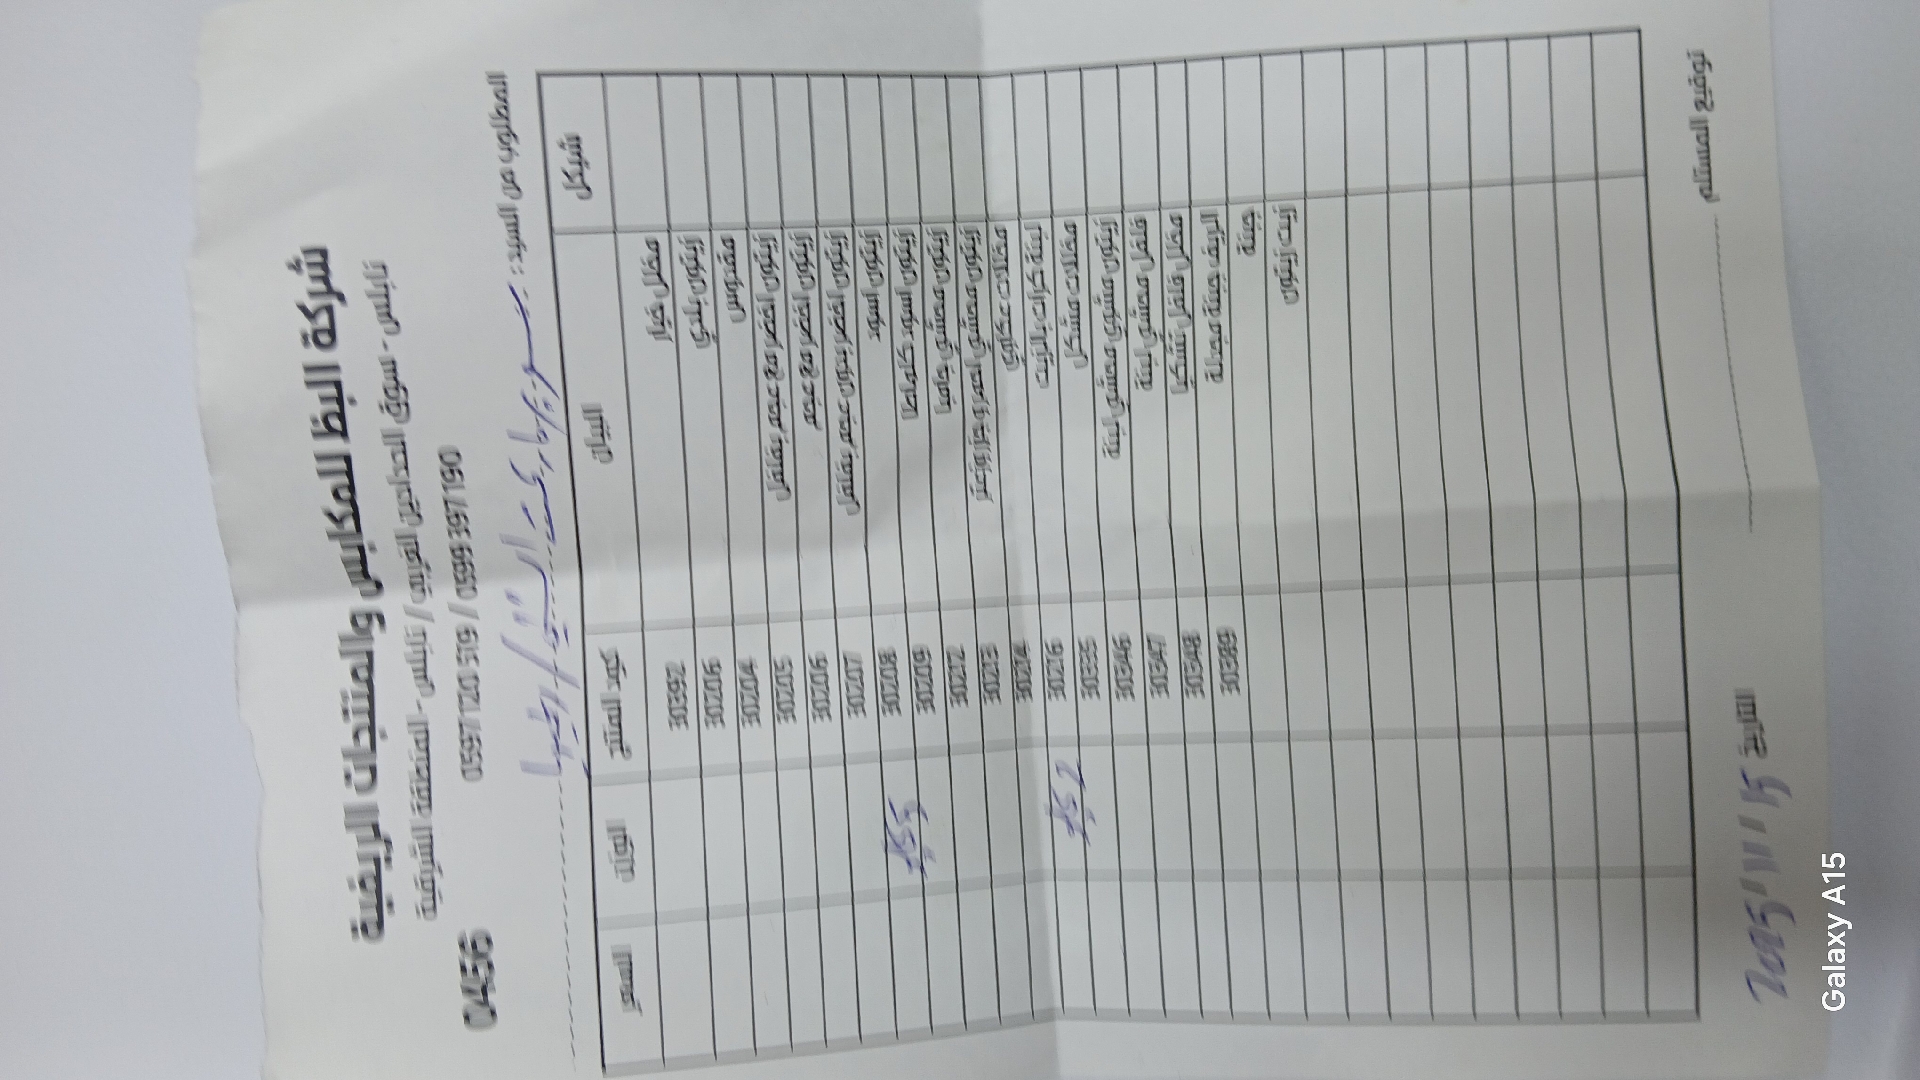 شركة البظ للمكابس والمنتجات الريفية
نابلس - سوق الحدادين الغربي / نابلس - المنطقة الشرقية
0456 0597 120 519 / 0599 397 190
المطلوب من السيد :
شيكل البيان كود المنتج الوزن السعر
مخلل خيار 30392
زيتون بلدي 30206
مقدوس 30204
زيتون اخضر مع عجم بفلفل 30205
زيتون اخضر مع عجم 30206
زيتون اخضر بدون عجم بفلفل 30207
زيتون اسود 30208
زيتون اسود كلاماطا 30209
زيتون محشي جامبا 30212
زيتون محشي احمر وجزر وزعتر 30213
مخللات عكاوي 30214
لبنة كرات بالزيت 30216
مخللات مشكل 30335
زيتون مشوي محشي لبنة 30346
فلفل محشي لبنة 30347
مخلل فلفل تشكيا 30348
الريف جبنة مبصلة 30389
جبنة
زيت زيتون
توقيع المستلم التاريخ 2025/11/15
Galaxy A15